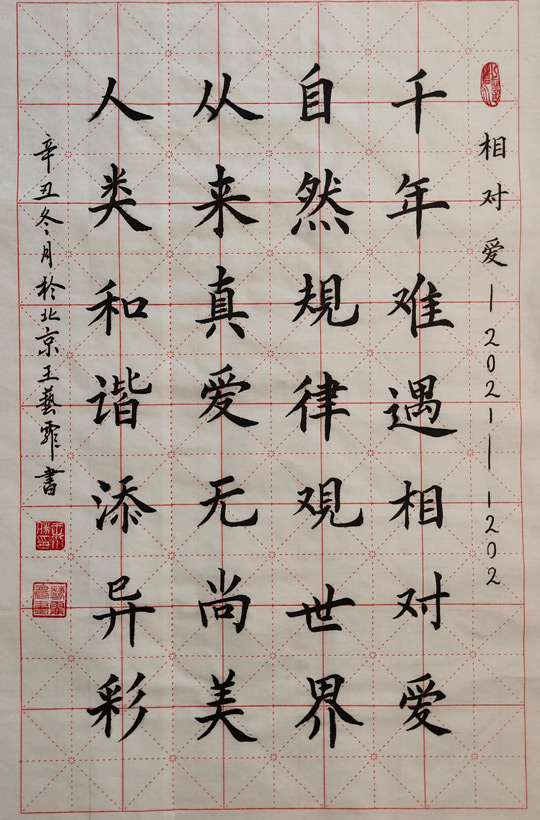 相对爱—2021——1202
千年难遇相对爱
自然规律观世界
从来真爱无尚美
人类和谐添异彩
辛丑冬月於北京王藝霏書